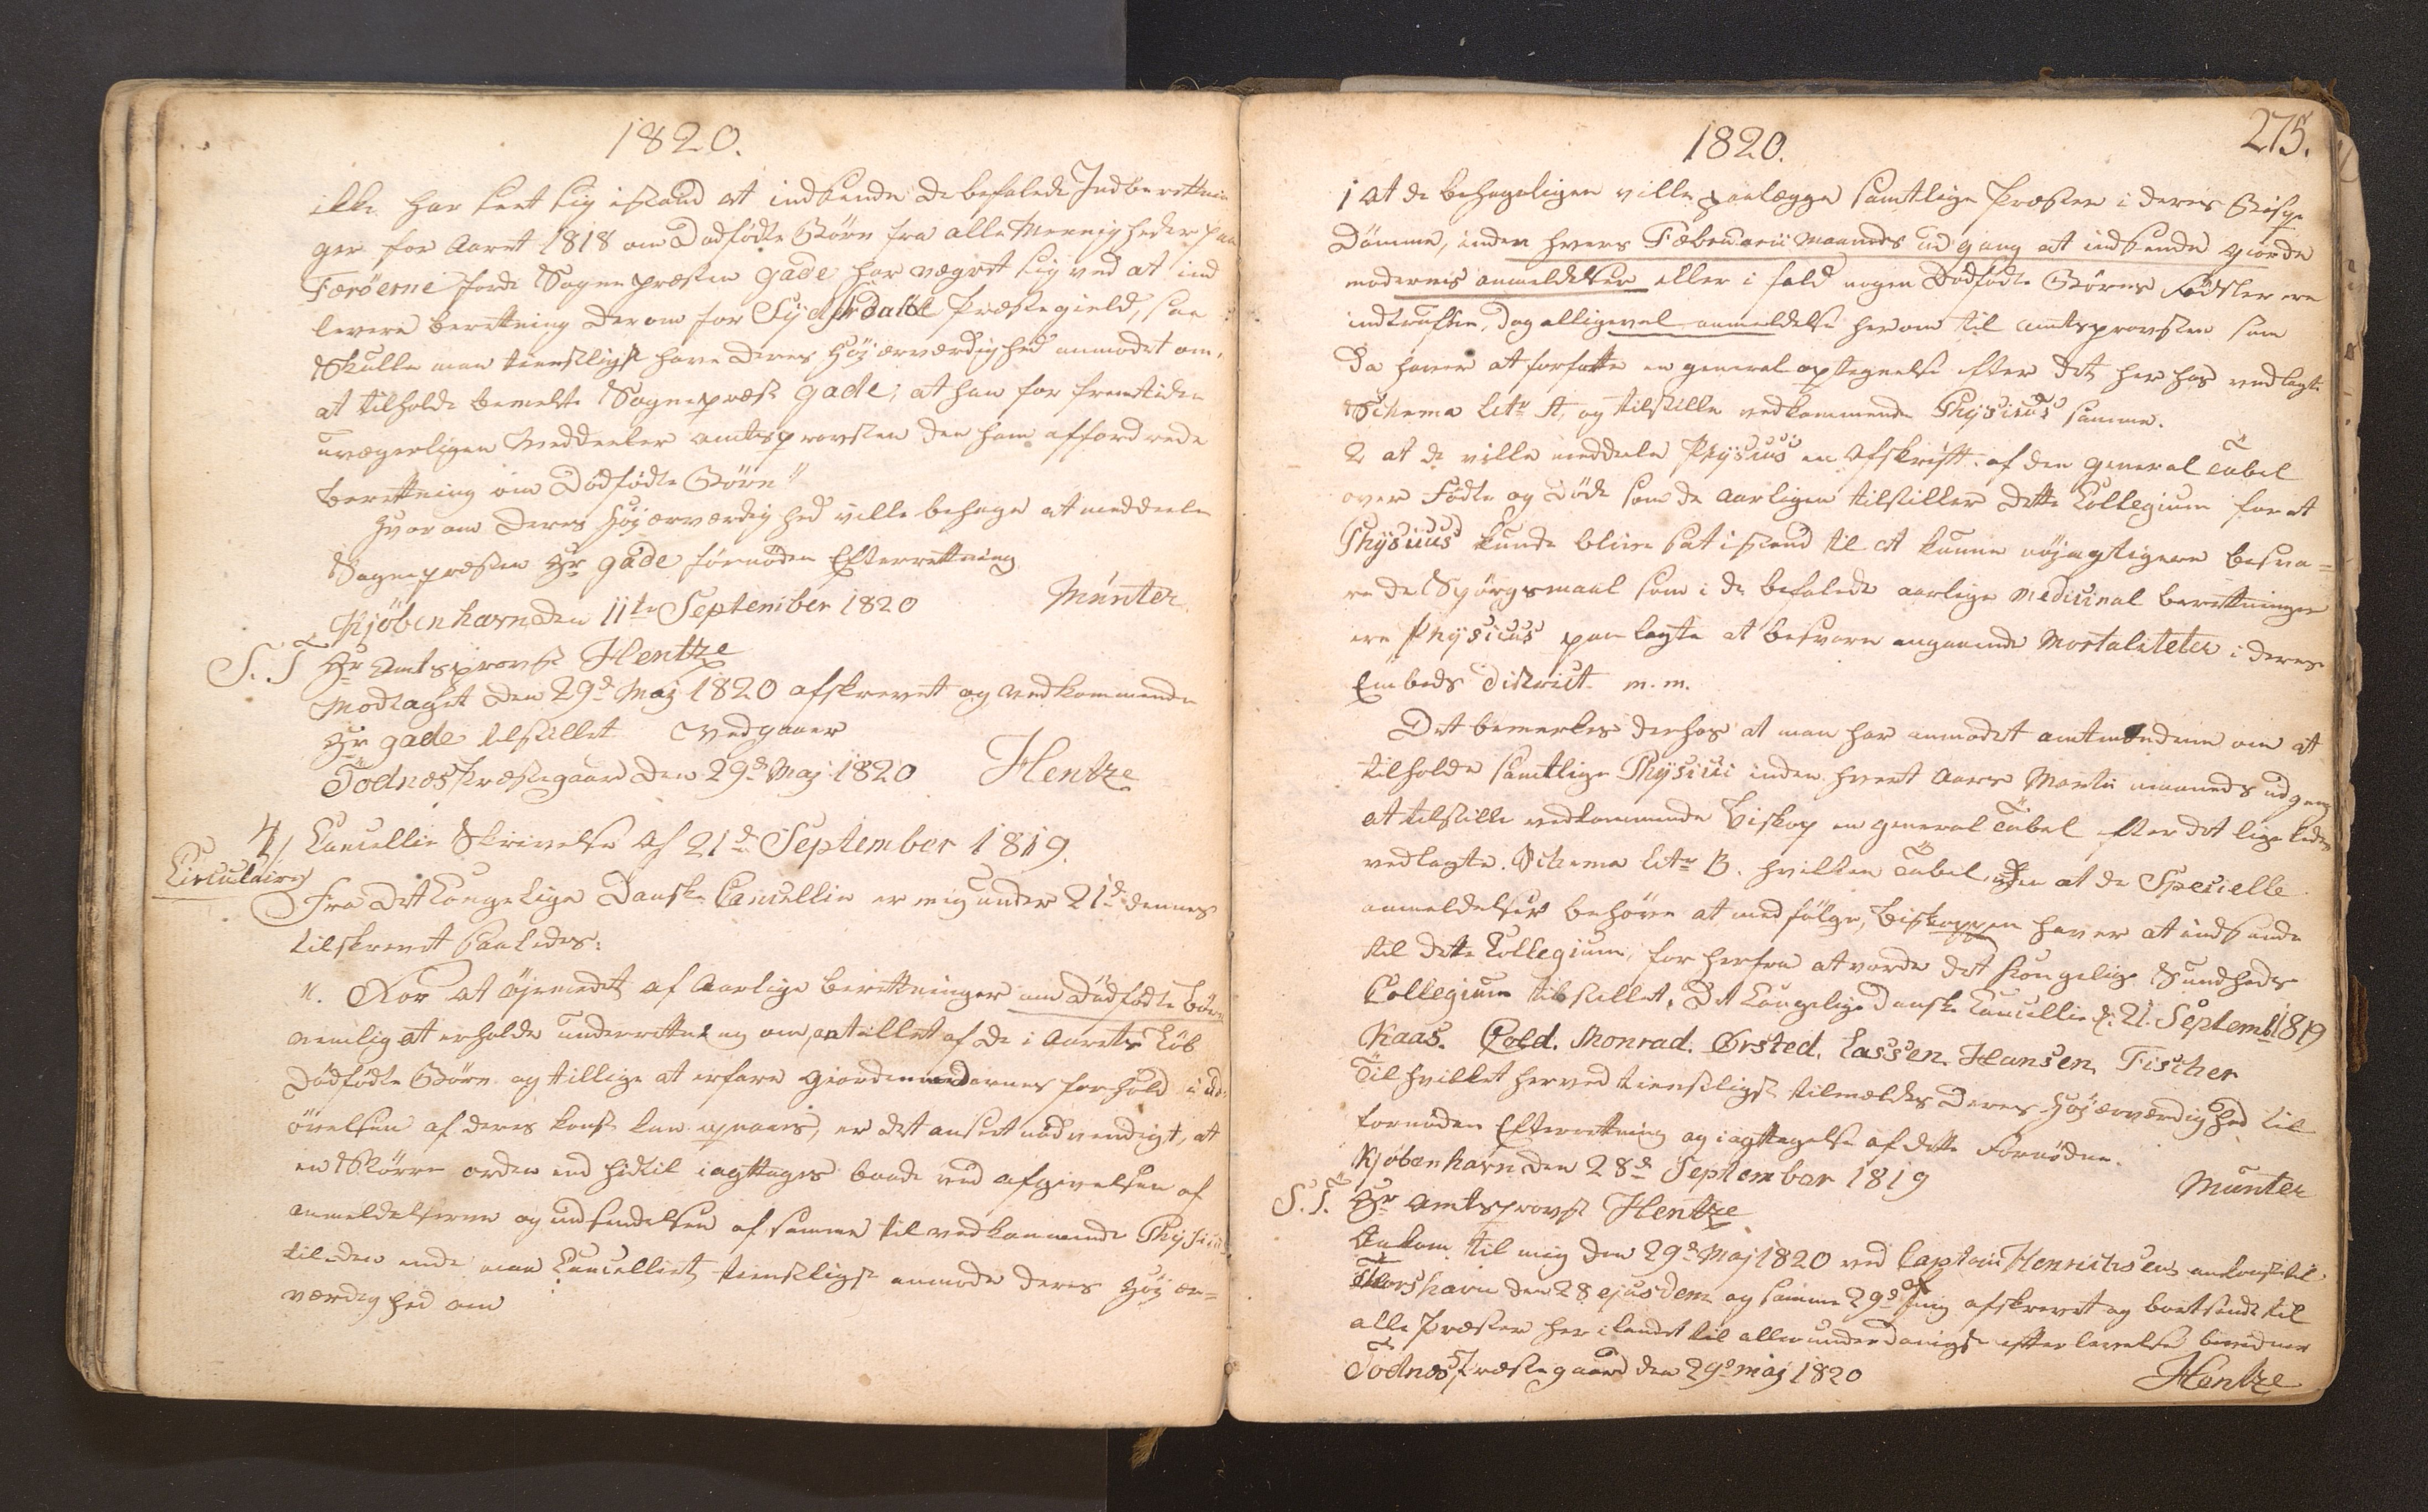 1820.
ikke har seet sig istand at indsende de befalede Indberetnin
ger for Aaret 1818 om Dødfødte Børn fra alle Menigheder paa
Færöerne fordi Sognepræsten Gade har vægret sig ved at ind
levere beretning derom for Sydströmöe Præstegield, saa
Skulle man tienstligst have Deres Høj ærværdighed anmodet om,
at tilholde bemelte Sognepræst Gade, at han for fremtiden
uvægerligen Meddeeler amtsprovsten den ham affordrede
beretning om Dödfödte Börn"
Hvorom Deres Høj ærværdighed ville behage at meddeele
Sognepræsten Hr Gade fornöden Efterretning
Kjöbenhavn den 11te September 1820 Münter
S. T Hr Amtsprovst Hentze
Modtaget den 29d Maj 1820 afskrevet og vedkommende
Hr Gade tilstillet Vedgaaer
Todnæs Præstegaard den 29d Maj 1820 Hentze
4/ Cancellie Skrivelse af 21d September 1819.
Circulaire
Fra det Kongelige Danske Cancellie er mig under 21d dennes
tilskrevet saaledes:
". For at öjemedet af Aarlige beretninger om Dödfödte børn
nemlig at erholde underretning om antallet af de i Aarets Løb
Dödfödte Börn og tillige at erfare Giordemødernes forhold i ud¬
övelsen af deres konst kan opnaaes, er det anseet nødvendigt, at
en Större orden end hidtil iagttages baade ved afgivelsen af
anmeldelserne og indsendelsen af samme til vedkommende Physicus
til den ende maa Cancelliet tienstligst anmode Deres Høj ær=
værdighed om
275.
1820.
1 at De behageligen ville paalægge samtlige Præster i deres Bispe
Dömme, inden hvers Februarii Maaneds udgang at indsende Giorde
modernes anmeldelser eller i fald ingen Dödfödte Börns Födsler ere
indtruffen, dog alligevel anmeldelse herom til amtsprovsten som
da haver at forfatte en general optegnelse efter det her hos vedlagte
Schema Litr A, og tilstille vedkommende Physicus samme.
2 at de ville meddeele Physicus en Afskrift af den general Tabel
over Födte og Döde som de aarligen tilstiller dette Collegium for at
Physicus kunde blive sat istand til at kunne nöjagtigere besva=
re de Spörgsmaal som i de befalede aarlige Medicinal beretninger
ere Physicus paalagte at besvare angaaende Mortaliteten i deres
Embeds District m. m.
Det bemerkes derhos at man har anmodet amtmændene om at
tilholde samtlige Physici inden hvert Aars Martii maaneds udgang
at tilstille vedkommende Biskop en general Tabel efter det lige ledes
vedlagte Schema Litr B. hvilken Tabel, uden at de Specielle
anmeldelser behöve at medfölge, Biskoppen haver at indsende
til dette Collegium, for herfra at vorde det Kongelige Sundheds
Collegium tilstillet. Det Kongelige Danske Cancellie d: 21. Septemb 1819
Kaas. Cold. Monrad. Ørsted. Lassen. Hansen. Fischer
Til hvilket herved tienstligst tilmeldes Deres Høj ærværdighed til
fornöden Efterretning og iagttagelse af dette Fornødne.
Kjöbenhavn den 28d September 1819 Münter
S. T. Hr Amtsprovst Hentze
Ankom til mig den 29d Maj 1820 ved Captain Henrichsens ankomst til
Thorshavn den 28 ejusdem og samme 29d Maj afskrevet og bortsendt til
alle Præster her i landet til allerunderdanigst efterlevelse bevidner
Todnæs Præstegaard den 29d Maj 1820
Hentze